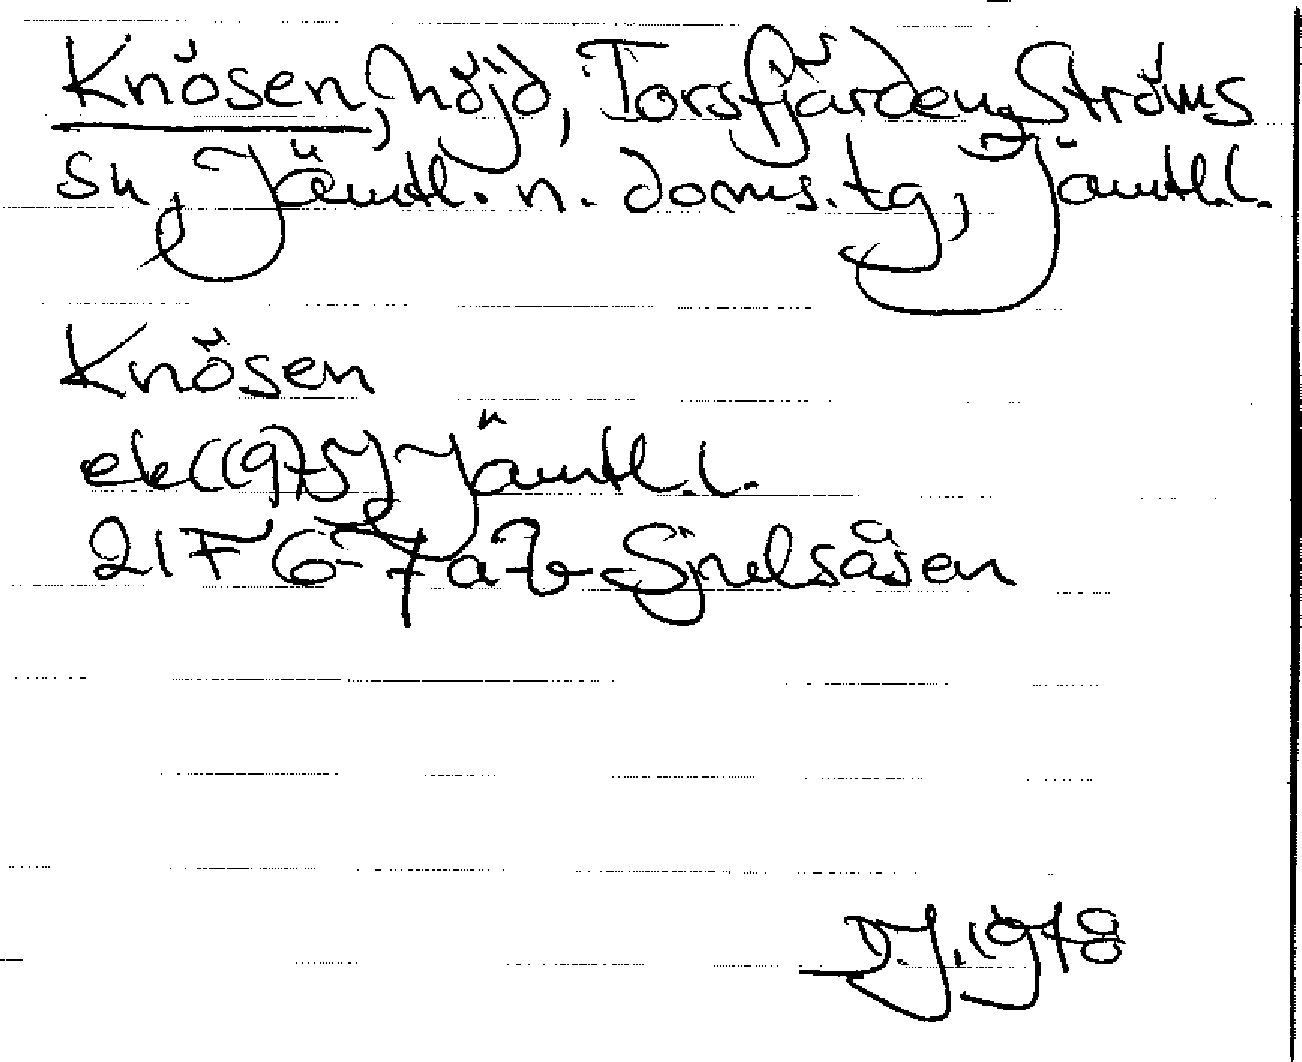 Knösen, höjd, Torsfjärden, Ströms
sn, Jämtl. n. doms. tg, Jämtl.l.
Knösen
ek (1975) Jämtl.l.
21F 6-7 a-b Sjulsåsen
1978